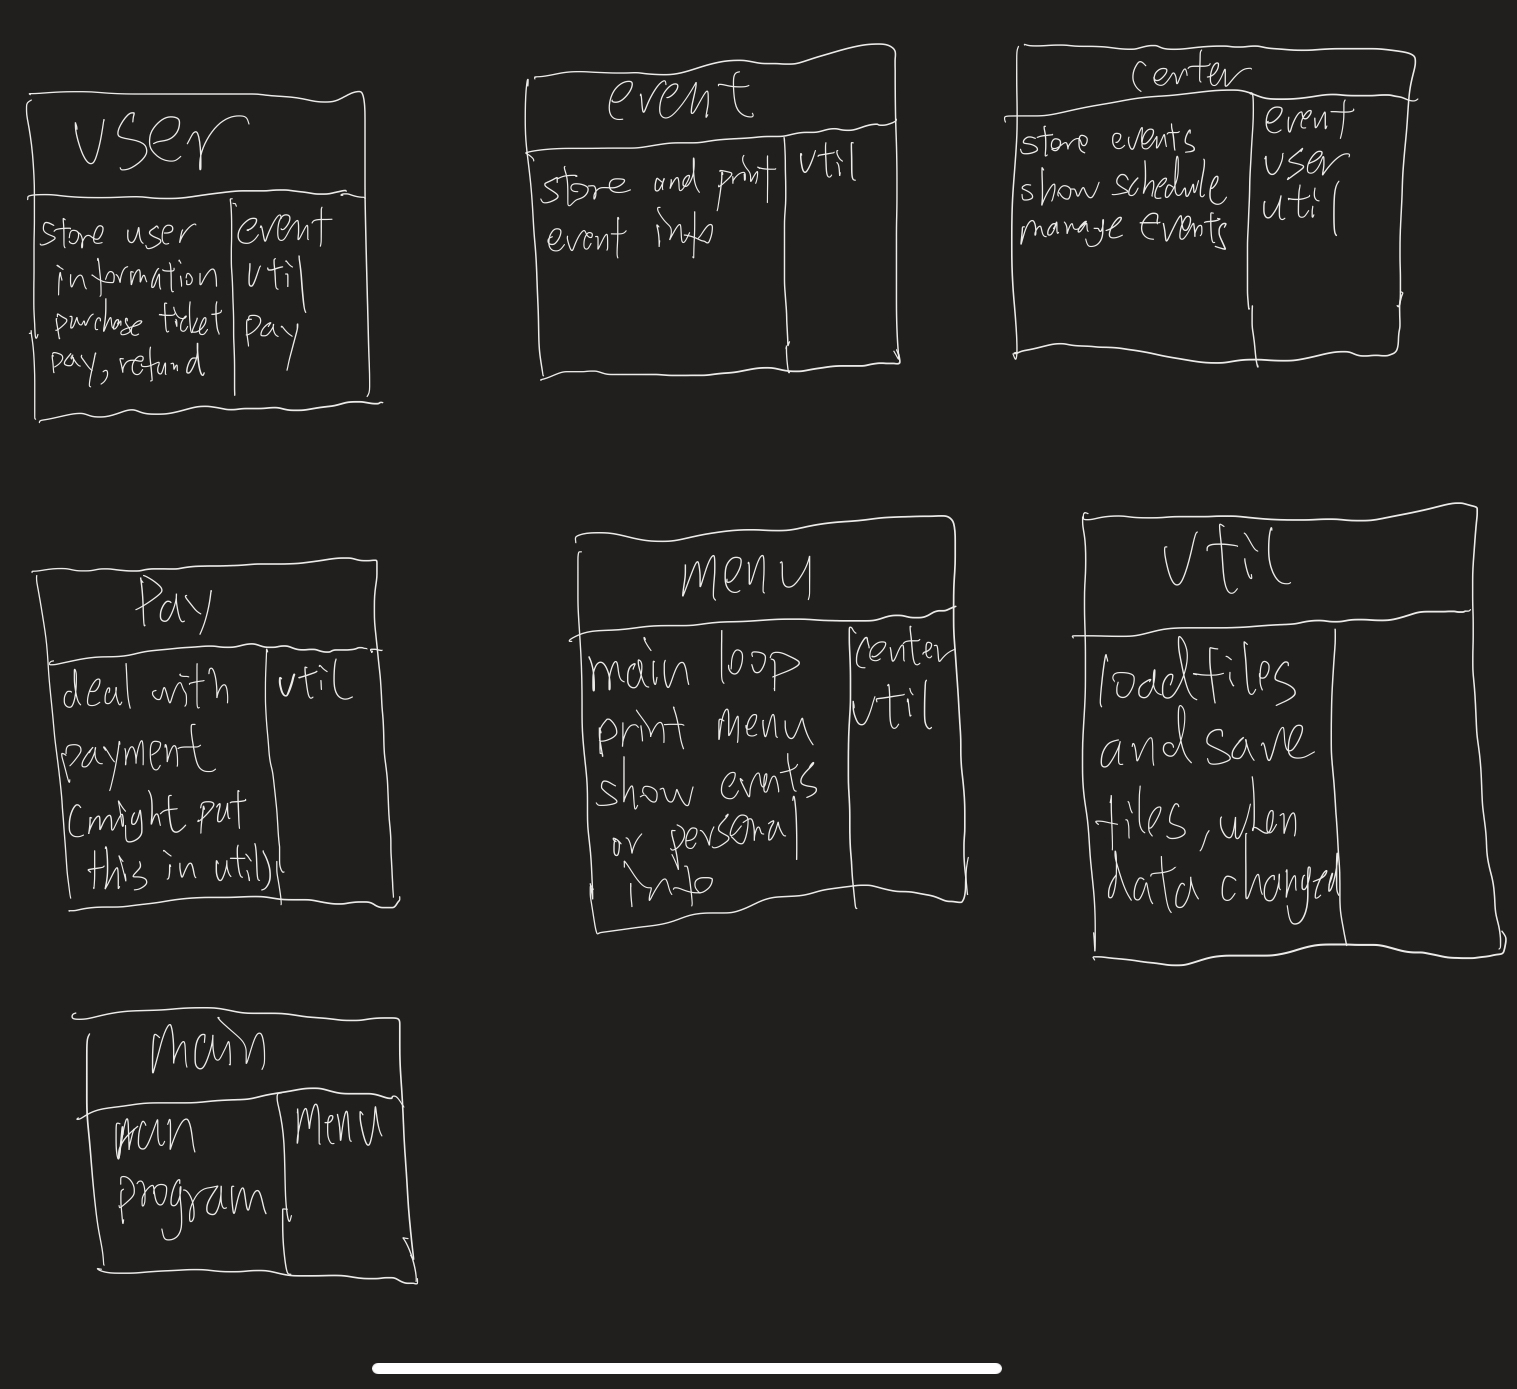 user
store user
information
purchase ticket
pay, refund
event
util
pay
event
store and print
event info
util
center
store events
show schedule
manage events
event
user
util
Pay
deal with
payment
(might put
this in util)
util
menu
main loop
print menu
show events
or personal
info
center
util
util
load files
and save
files, when
data changed
main
run
program
menu